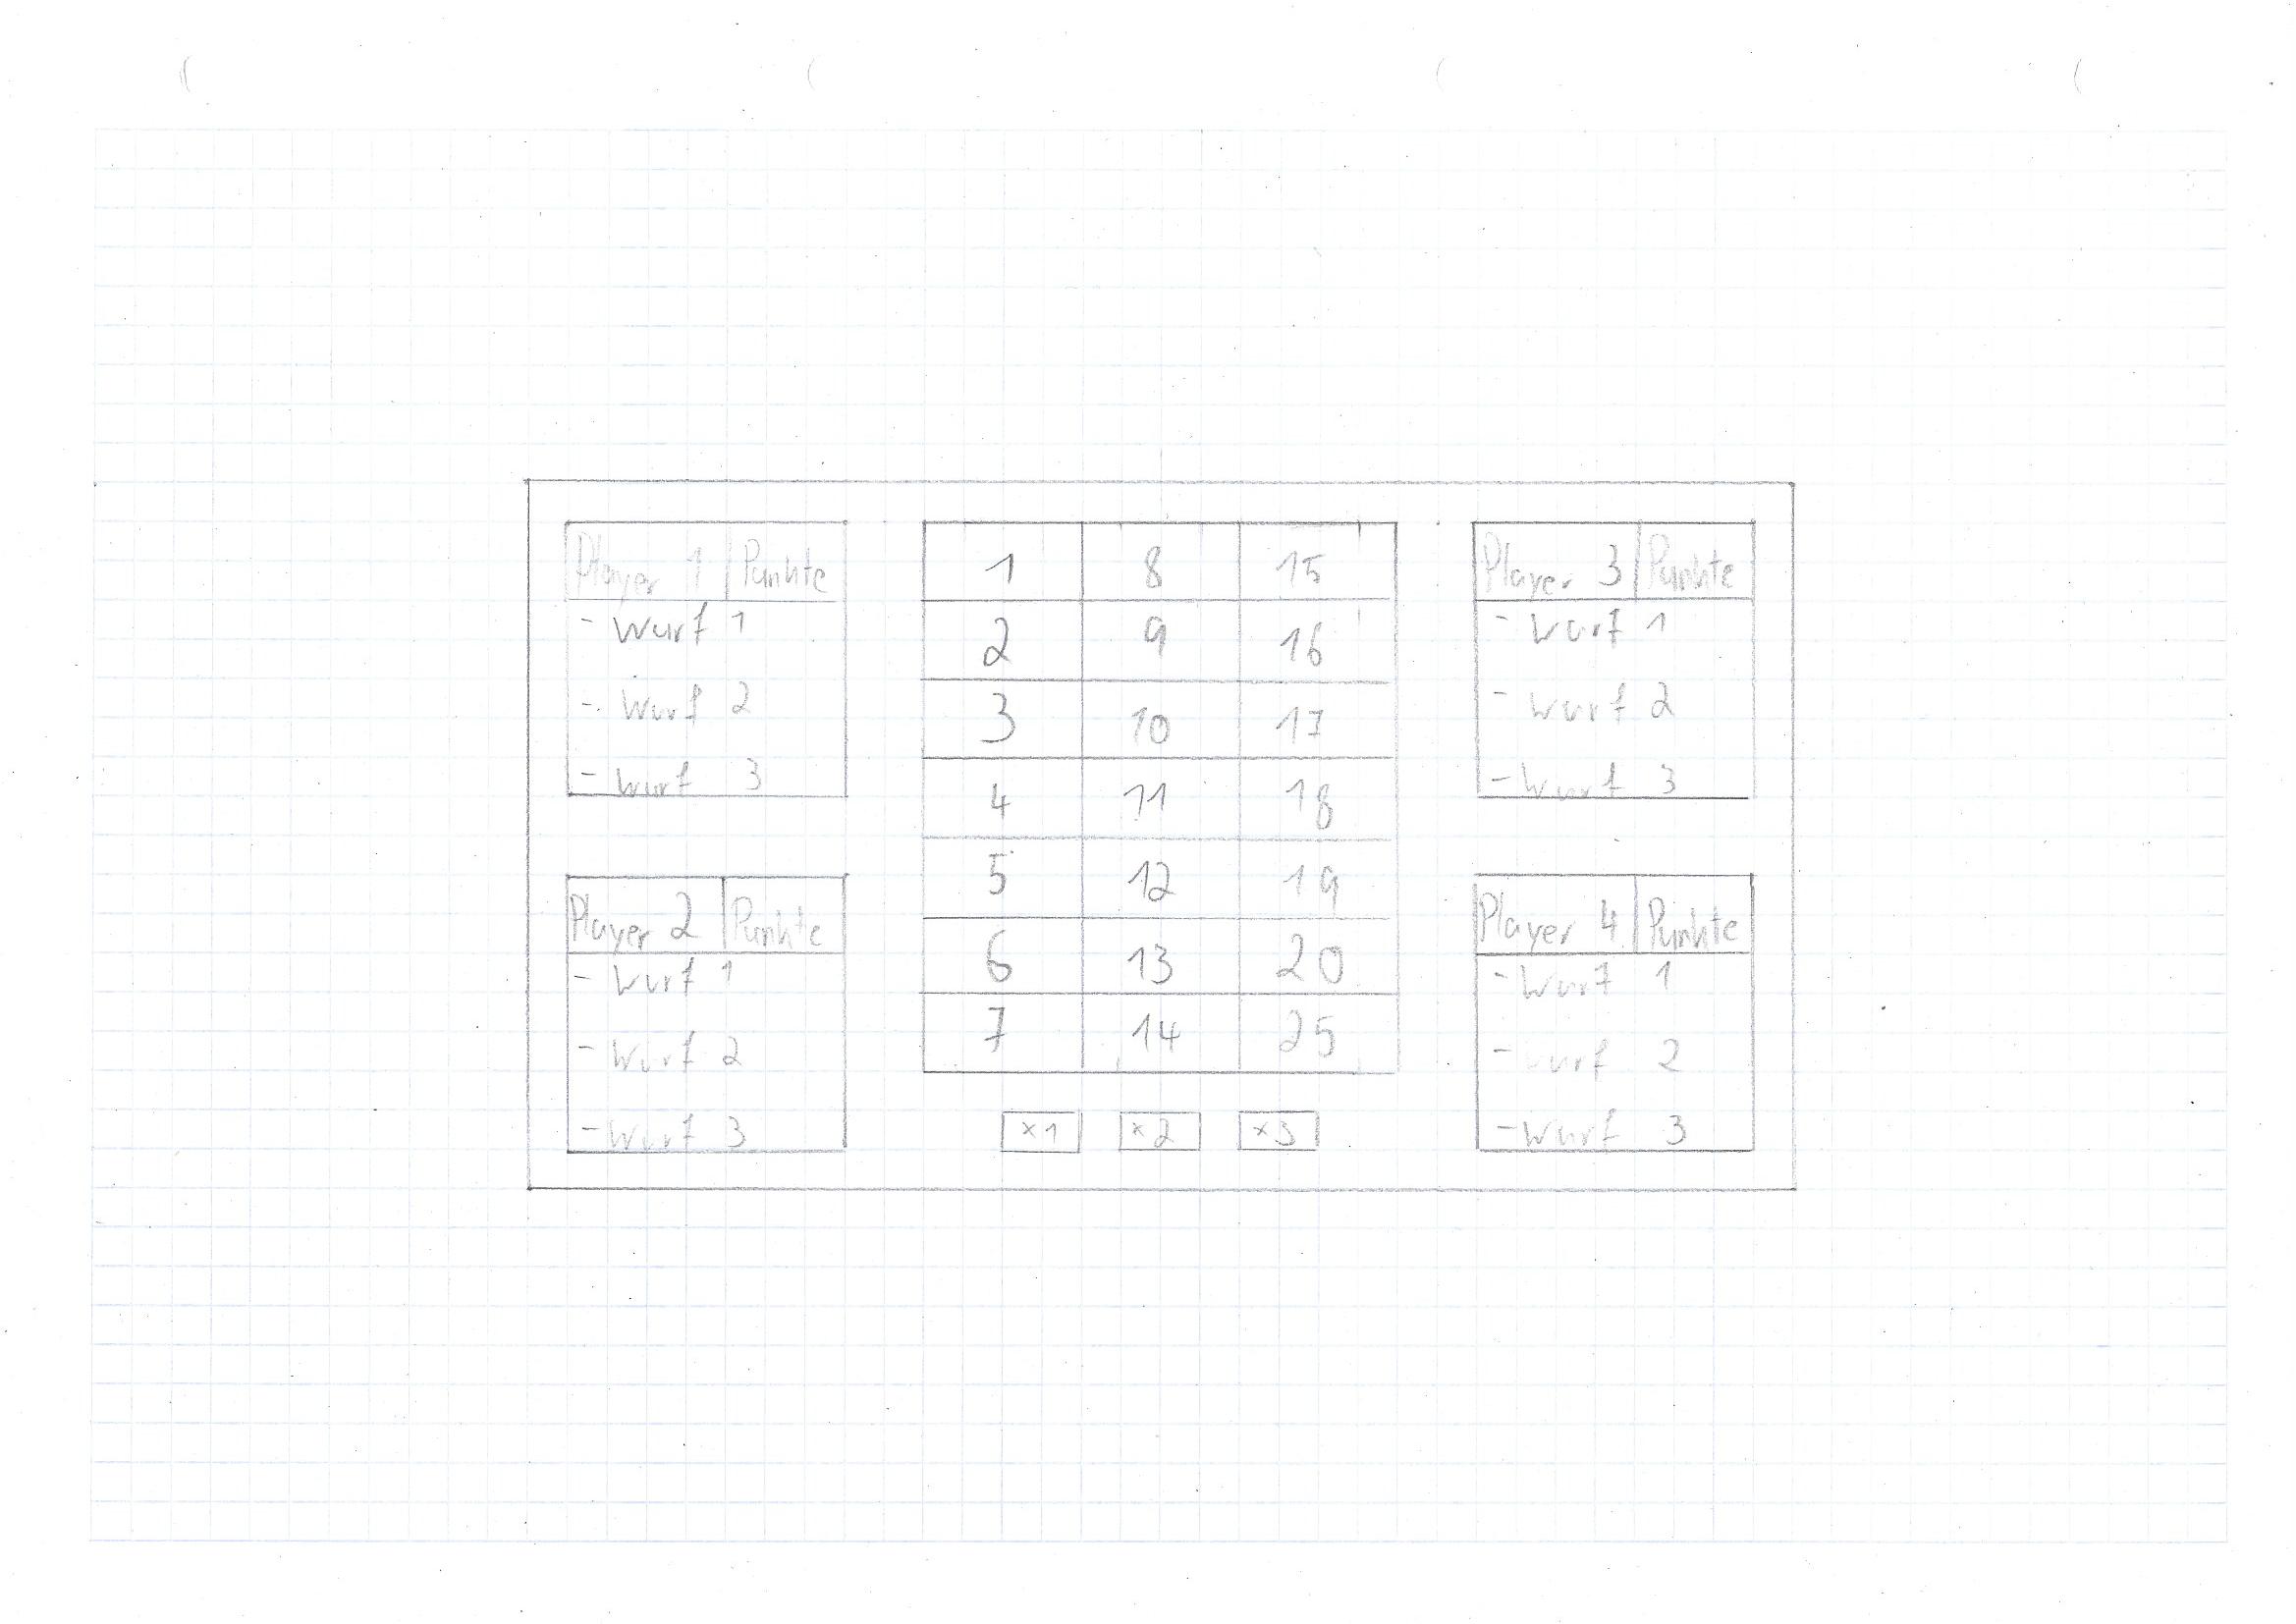 Player 1 Punkte
- Wurf 1
- Wurf 2
- Wurf 3
Player 2 Punkte
- Wurf 1
- Wurf 2
- Wurf 3
1 8 15
2 9 16
3 10 17
4 11 18
5 12 19
6 13 20
7 14 25
x1 x2 x3
Player 3 Punkte
- Wurf 1
- Wurf 2
- Wurf 3
Player 4 Punkte
- Wurf 1
- Wurf 2
- Wurf 3